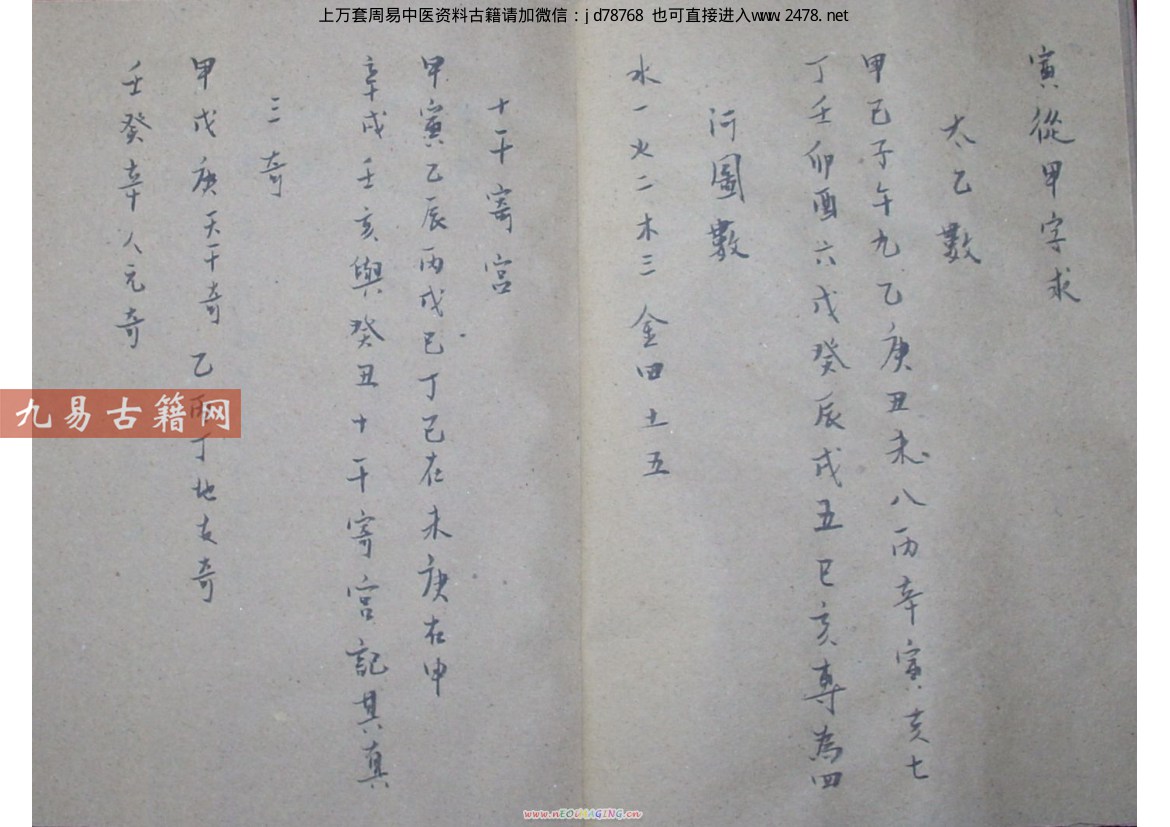 上万套周易中医资料古籍请加微信：jd78768 也可直接进入www.2478.net
寅從甲字求
太乙數
甲己子午九乙庚丑未八丙辛寅亥七
丁壬卯酉六戊癸辰戌五巳亥專為四
河圖數
水一火二木三金四土五
十干寄宮
甲寅乙辰丙戊巳丁己在未庚在申
辛戌壬亥與癸丑十干寄宮記其真
三奇
甲戊庚天干奇乙丙丁地支奇
壬癸辛人元奇
九易古籍网
www.nEOiMAGING.cn